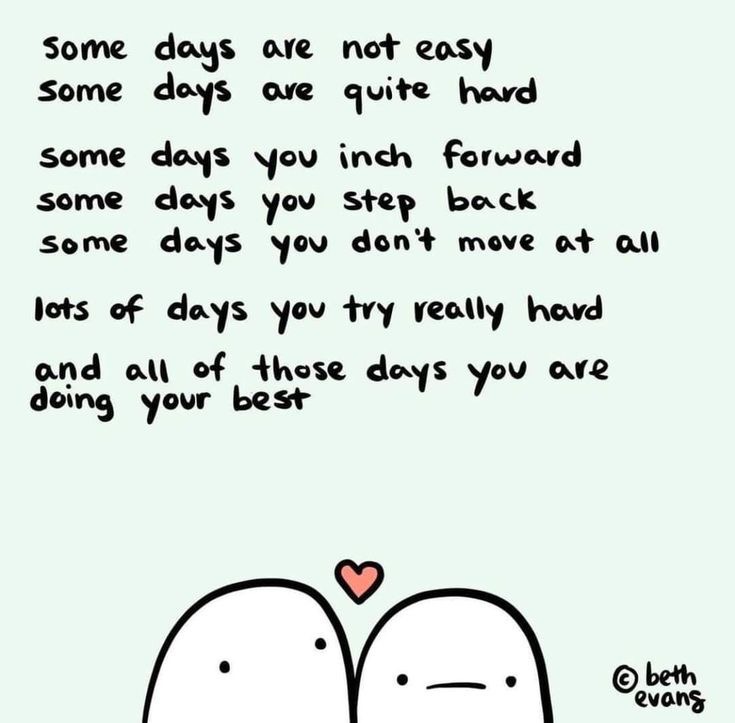 some days are not easy
some days are quite hard
some days you inch forward
some days you step back
some days you don't move at all
lots of days you try really hard
and all of those days you are
doing your best
© beth
evans